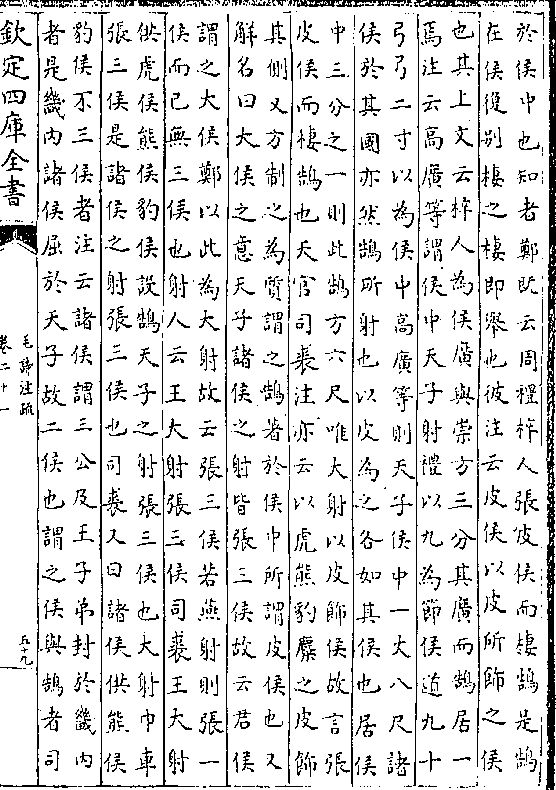 於侯中也知者鄭既云周禮梓人張皮侯而棲鵠是鵠
在侯復别棲之棲即舉也彼注云皮侯以皮所飾之侯
也其上文云梓人為侯廣與崇方三分其廣而鵠居一
焉注云高廣等謂侯中天子射禮以九為節侯道九十
弓弓二寸以為侯中高廣等則天子侯中一丈八尺諸
侯於其國亦然鵠所射也以皮為之各如其侯也居侯
中三分之一則此鵠方六尺唯大射以皮飾侯故言張
皮侯而棲鵠也天官司裘注亦云以虎熊豹麋之皮飾
其側又方制之為質謂之鵠著於侯中所謂皮侯也又
解名曰大侯之意天子諸侯之射皆張三侯故云君侯
謂之大侯鄭以此為大射故云張三侯若燕射則張一
侯而已無三侯也射人云王大射張三侯司裘王大射
供虎侯熊侯豹侯設鵠天子之射張三侯也大射巾車
張三侯是諸侯之射張三侯也司裘又曰諸侯供熊侯
豹侯不三侯者注云諸侯謂三公及王子弟封於畿内
者是畿内諸侯屈於天子故二侯也謂之侯與鵠者司
欽定四庫全書
毛詩注疏
卷二十一
五十九